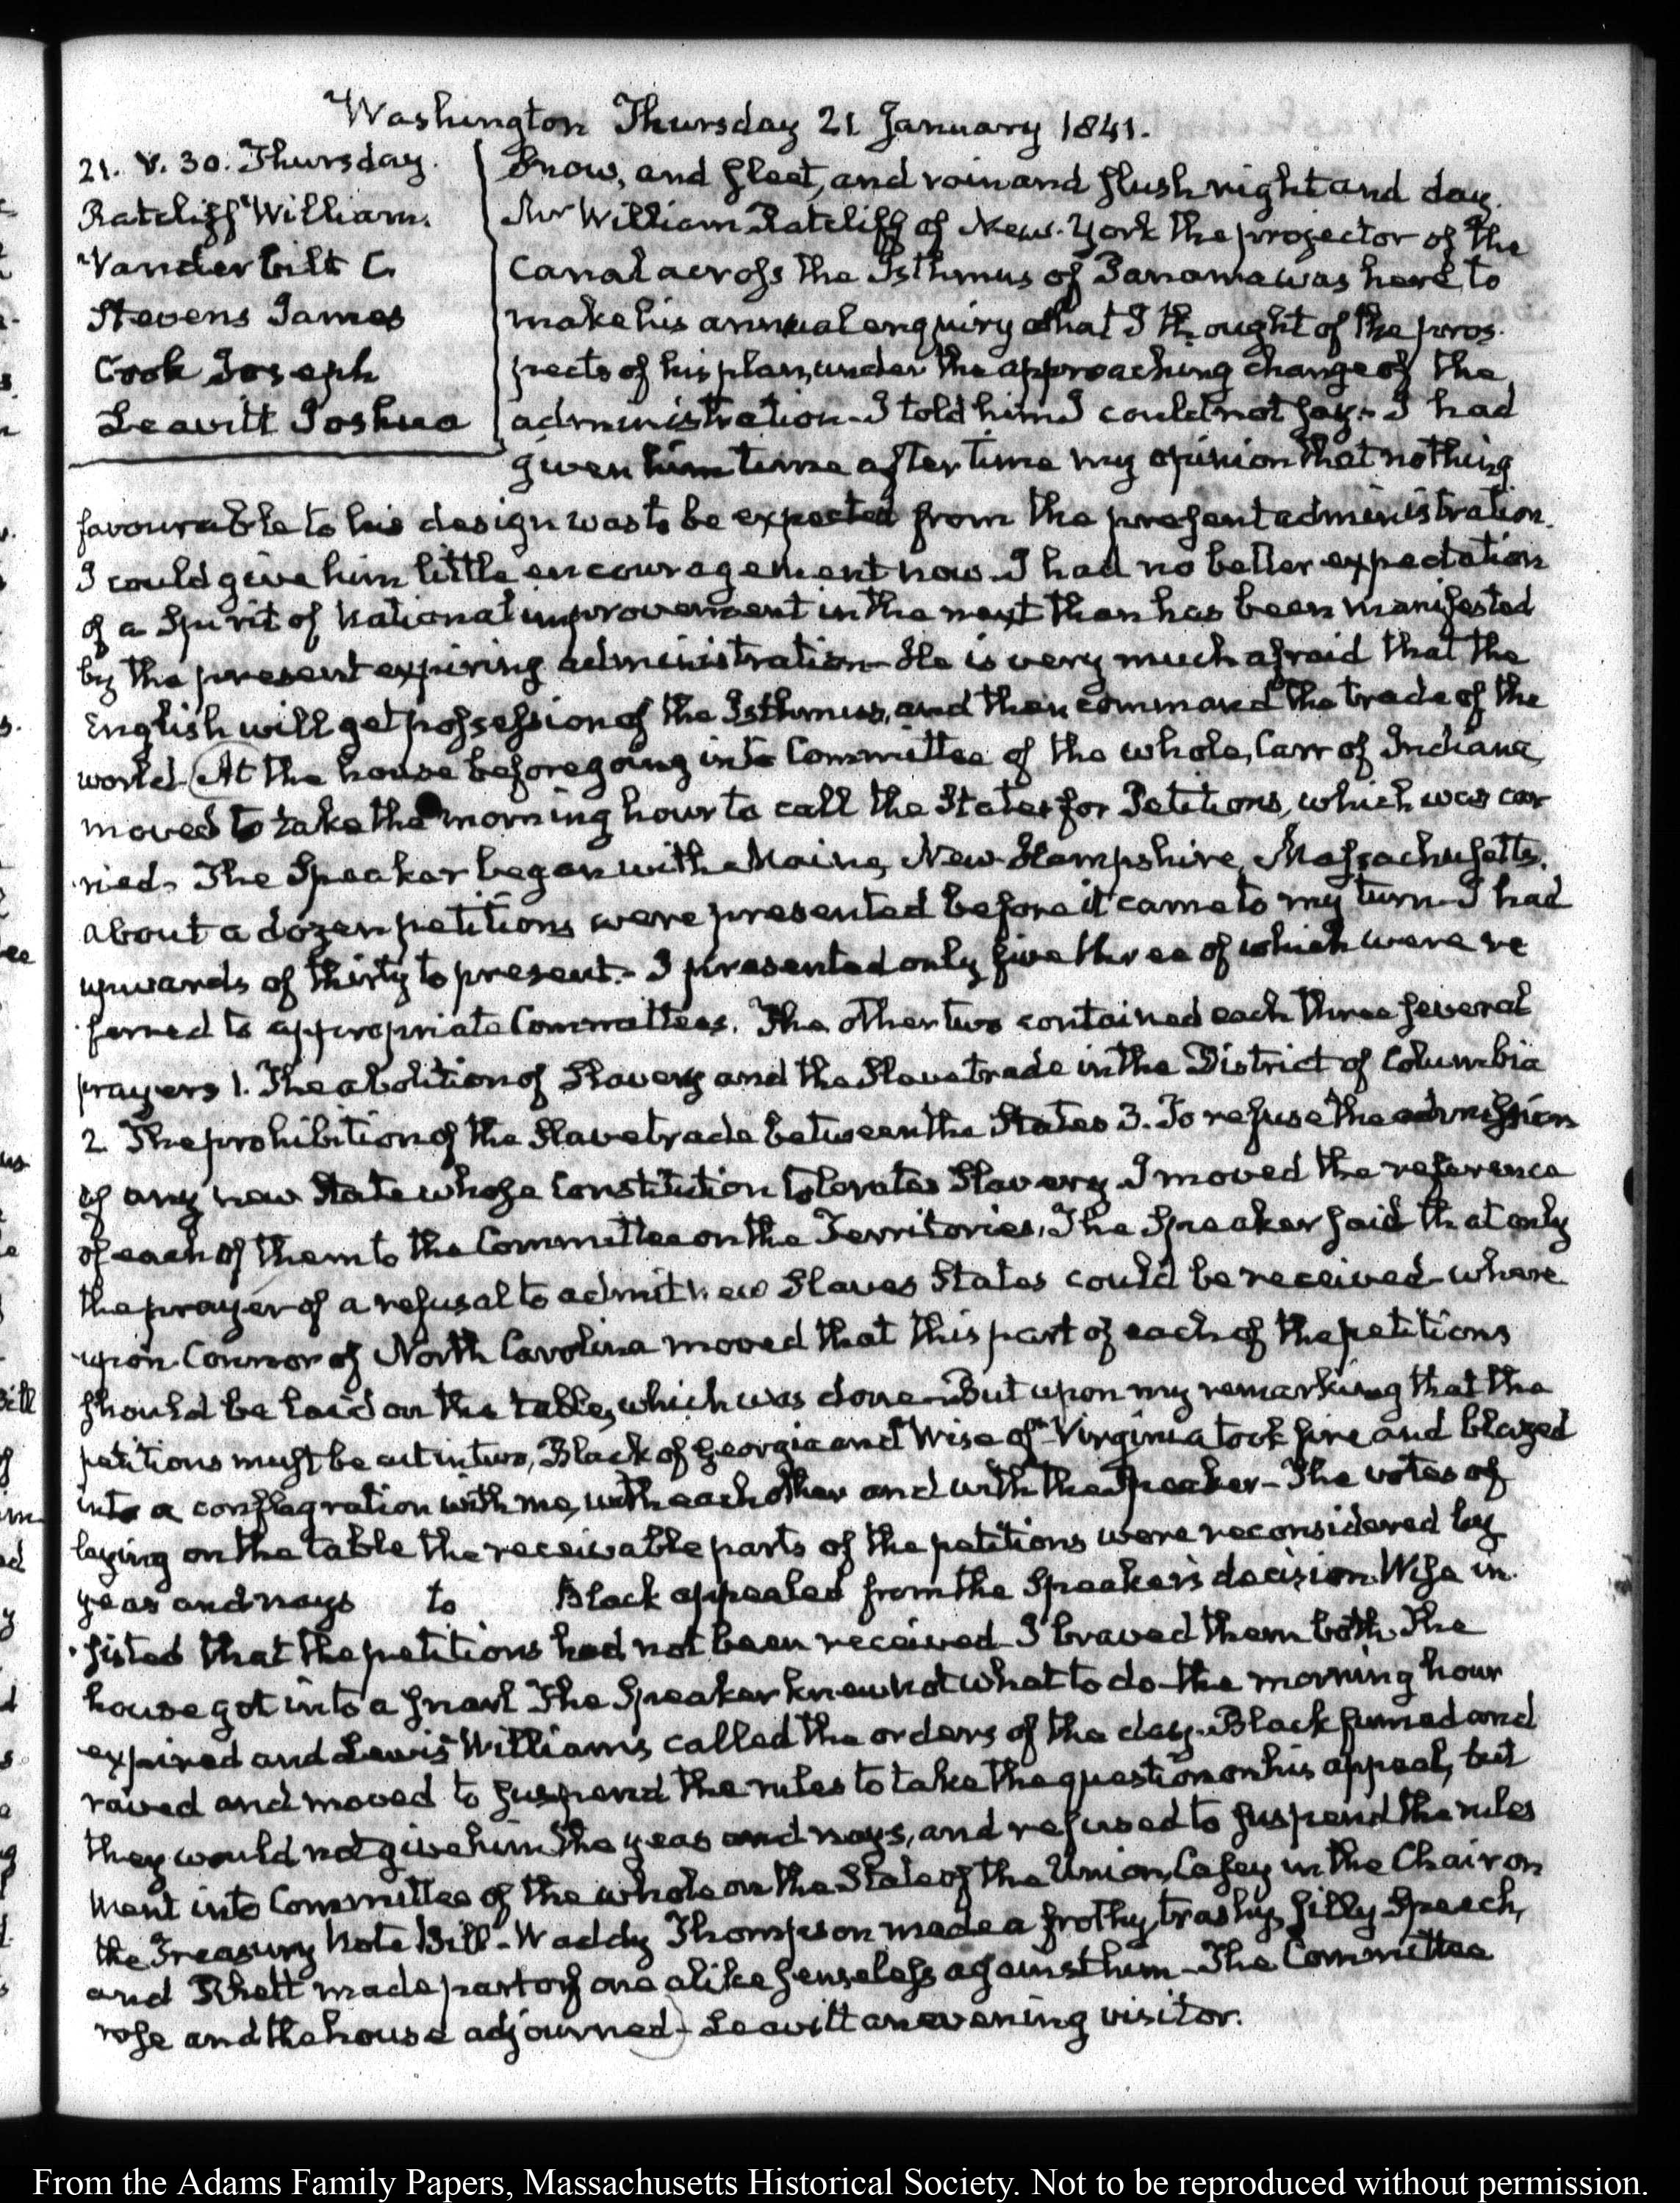 Washington Thursday 21 January 1841.
21. V. 30. Thursday.
Ratcliff William.
Vanderbilt C.
Stevens James
Cook Joseph
Leavitt Joshua
Snow, and sleet, and rain and slush night and day.
Mr William Ratcliff of New-York the projector of the
canal across the Isthmus of Panama was here, to
make his annual enquiry what I thought of the pros-
pects of his plan, under the approaching change of the
administration—I told him I could not say—I had
given him time after time my opinion that nothing
favourable to his design was to be expected from the present administration.
I could give him little encouragement now. I had no better expectation
of a Spirit of National improvement in the next than has been manifested
by the present expiring administration—He is very much afraid that the
English will get possession of the Isthmus, and then command the trade of the
world—At the house before going into Committee of the whole, Carr of Indiana
moved to take the morning hour to call the States for Petitions, which was car
ried—The Speaker began with Maine, New-Hampshire, Massachusetts.
about a dozen petitions were presented before it came to my turn—I had
upwards of thirty to present—I presented only five three of which were re
ferred to appropriate Committees. The other two contained each three several
prayers 1. The abolition of Slavery and the Slave trade in the District of Columbia
2. The prohibition of the Slave trade between the States 3. To refuse the admission
of any new State whose Constitution tolerates Slavery—I moved the reference
of each of them to the Committee on the Territories. The Speaker said that only
the prayer of a refusal to admit new Slaves States could be received—where
upon Connor of North Carolina moved that this part of each of the petitions
should be laid on the table, which was done—But upon my remarking that the
petitions must be cut in two, Black of Georgia and Wise of Virginia took fire and blazed
into a conflagration with me, with each other and with the Speaker—The votes of
laying on the table the receivable parts of the petitions were reconsidered by
yeas and nays to Black appealed from the Speaker's decision. Wise in
sisted that the petitions had not been received—I braved them both. The
house got into a snarl The Speaker knew not what to do—the morning hour
expired and Lewis Williams called the orders of the day—Black fumed and
raved and moved to suspend the rules to take the question on his appeal, but
they would not give him the yeas and nays, and refused to suspend the rules
Went into Committee of the whole on the State of the Union, Casey in the Chair on
the Treasury Note Bill—Waddy Thompson made a frothy, trashy, silly Speech,
and Rhett made part of one alike senseless against him—The Committee
rose and the house adjourned—Leavitt an evening visitor.
From the Adams Family Papers, Massachusetts Historical Society. Not to be reproduced without permission.